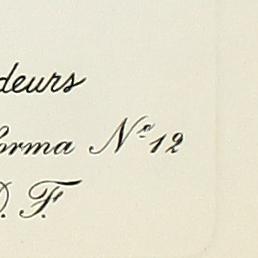 deurs
forma Nº 12
D. F.